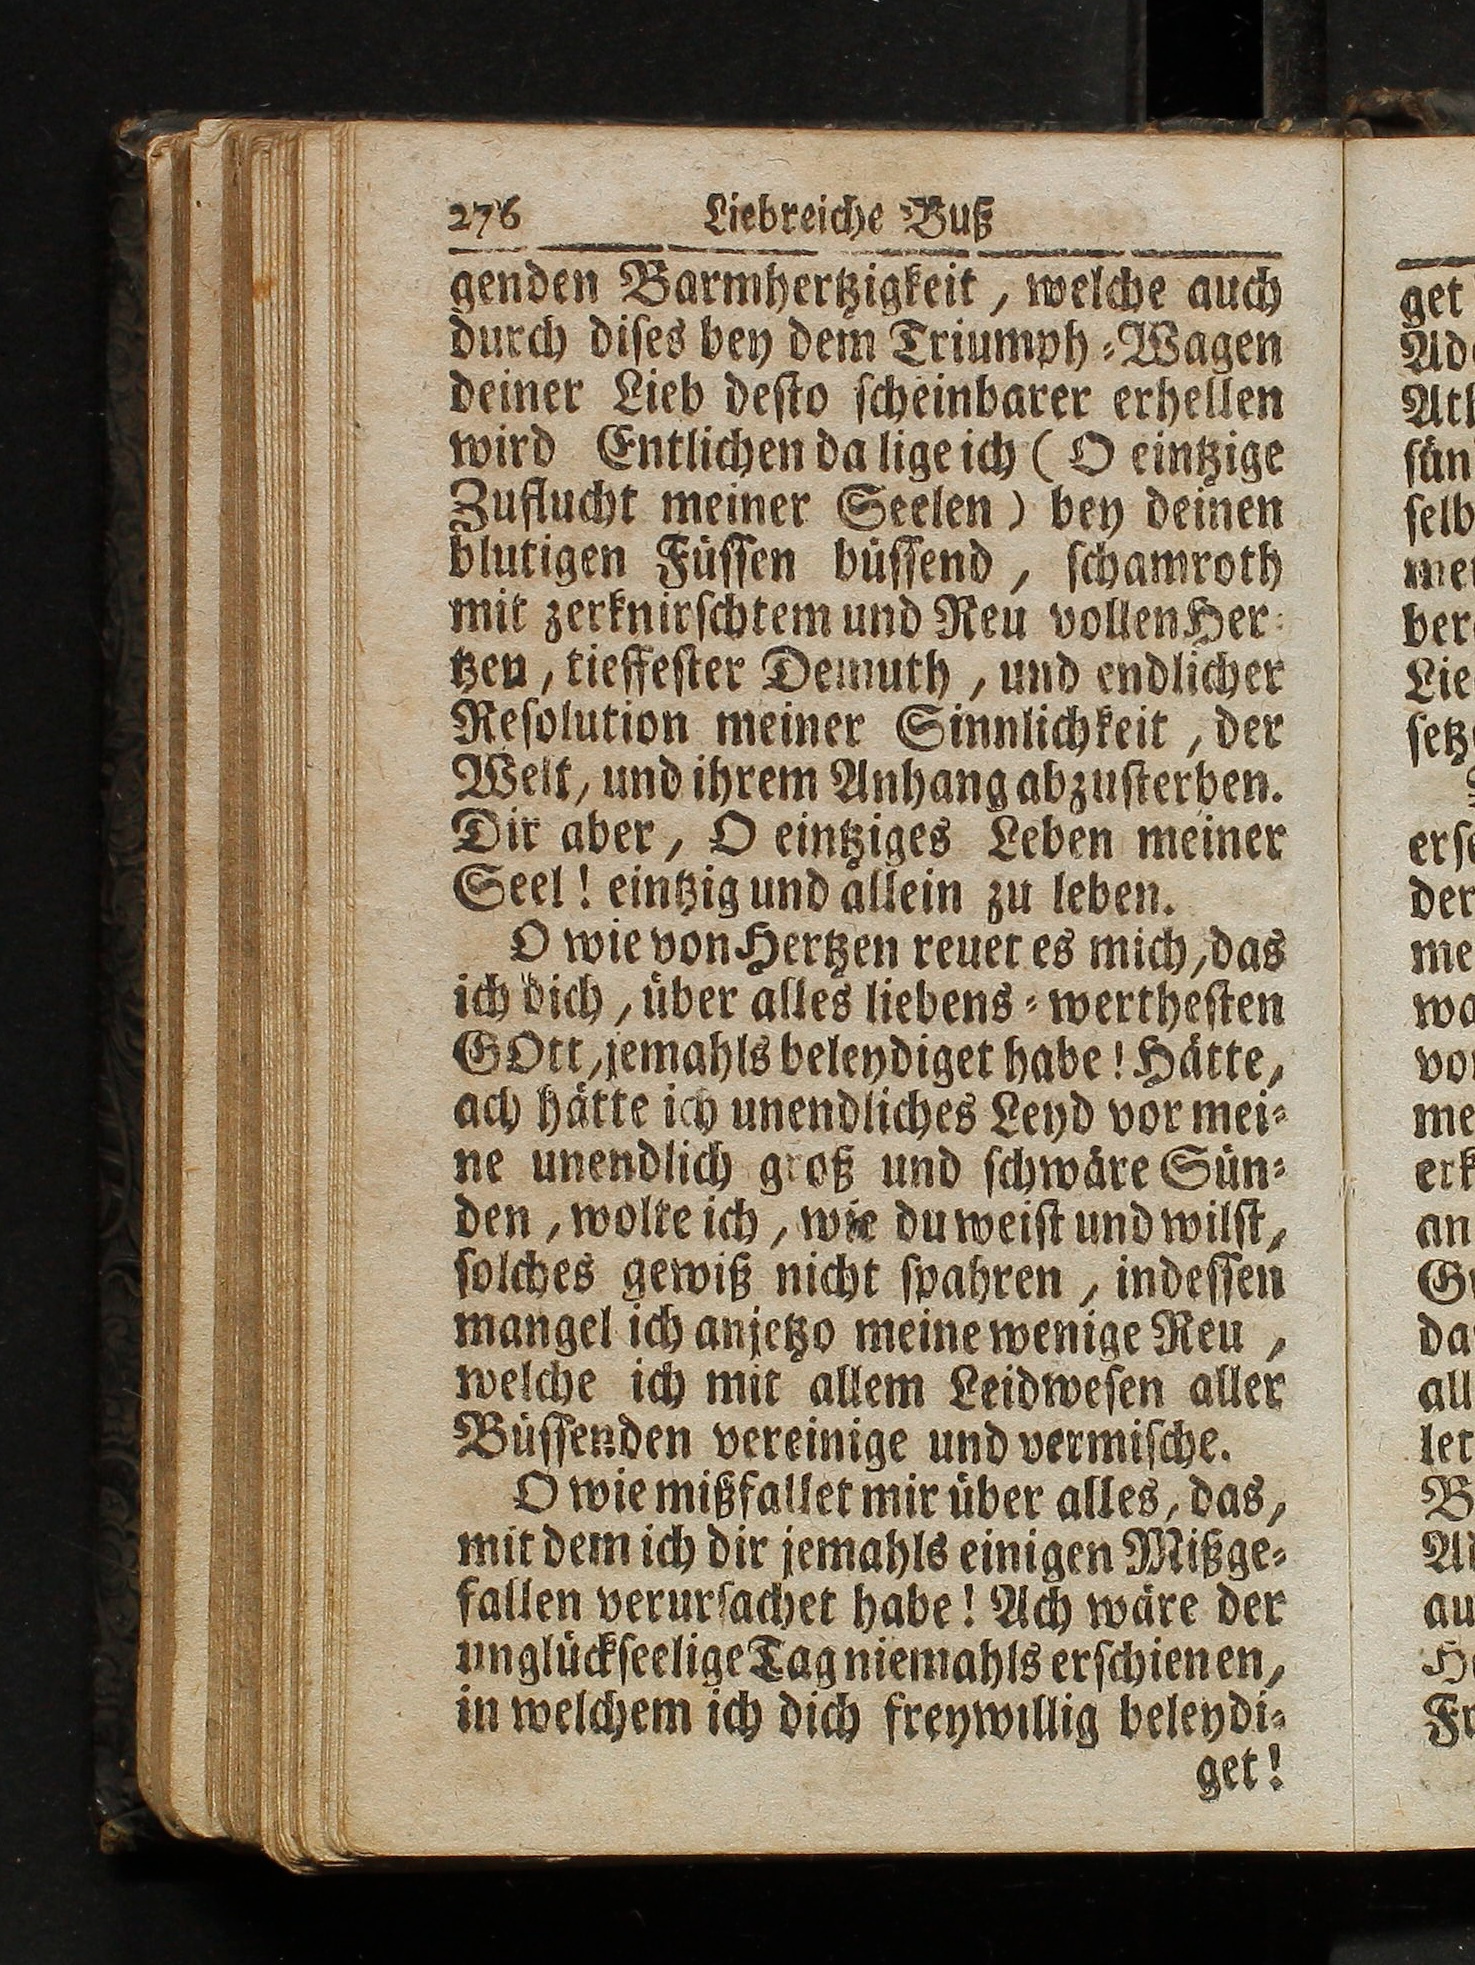 276 Liebreiche Buß
genden Barmhertzigkeit, welche auch
durch dises bey dem Triumph-Wagen
deiner Lieb desto scheinbarer erhellen
wird Entlichen da lige ich (O eintzige
Zuflucht meiner Seelen) bey deinen
blutigen Füssen büssend, schamroth
mit zerknirschtem und Reu vollen Her-
tzen, tieffester Demuth, und endlicher
Resolution meiner Sinnlichkeit, der
Welt, und ihrem Anhang abzusterben.
Dir aber, O eintziges Leben meiner
Seel! eintzig und allein zu leben.
O wie von Hertzen reuet es mich, das
ich dich, über alles liebens-werthesten
GOtt, jemahls beleydiget habe! Hätte,
ach hätte ich unendliches Leyd vor mei-
ne unendlich groß und schwäre Sün-
den, wolte ich, wie du weist und wilst,
solches gewiß nicht spahren, indessen
mangel ich anjetzo meine wenige Reu,
welche ich mit allem Leidwesen aller
Büssenden vereinige und vermische.
O wie mißfallet mir über alles, das,
mit dem ich dir jemahls einigen Mißge-
fallen verursachet habe! Ach wäre der
unglückseelige Tag niemahls erschienen,
in welchem ich dich freywillig beleydi-
get!